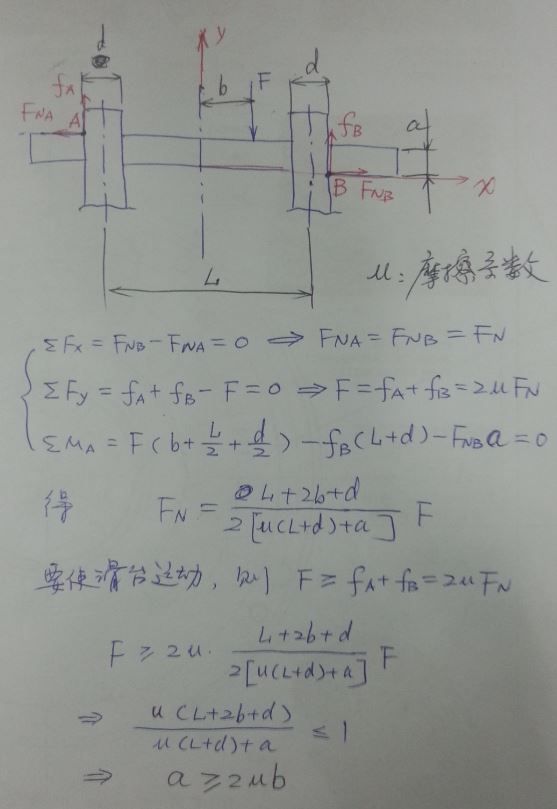 y
d
b
F
d
fA
FNA
A
fB
a
B
FNB
x
L
μ: 摩擦系数
ΣFx = FNB - FNA = 0 ⟹ FNA = FNB = FN
ΣFy = fA + fB - F = 0 ⟹ F = fA + fB = 2μFN
ΣMA = F(b + L/2 + d/2) - fB(L+d) - FNB a = 0
得 FN = (L+2b+d) / (2[μ(L+d)+a]) F
要使滑台运动, 则 F ≥ fA + fB = 2μFN
F ≥ 2μ · (L+2b+d) / (2[μ(L+d)+a]) F
⟹ μ(L+2b+d) / (μ(L+d)+a) ≤ 1
⟹ a ≥ 2μb